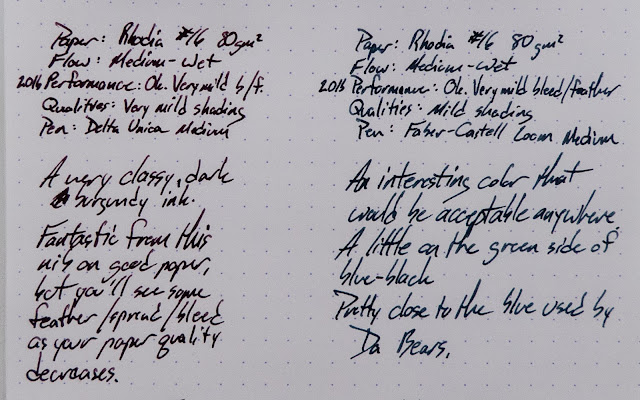 Paper: Rhodia #16 80gm²
Flow: Medium-Wet
2016 Performance: Ok. Very mild b/f.
Qualities: Very mild shading
Pen: Delta Unica Medium
A very classy, dark
burgundy ink.
Fantastic from this
nib on good paper,
but you'll see some
feather/spread/bleed
as your paper quality
decreases.
Paper: Rhodia #16 80gm²
Flow: Medium-Wet
2013 Performance: Ok. Very mild bleed/feather
Qualities: Mild shading
Pen: Faber-Castell Loom Medium
An interesting color that
would be acceptable anywhere.
A little on the green side of
blue-black
Pretty close to the blue used by
Da Bears.